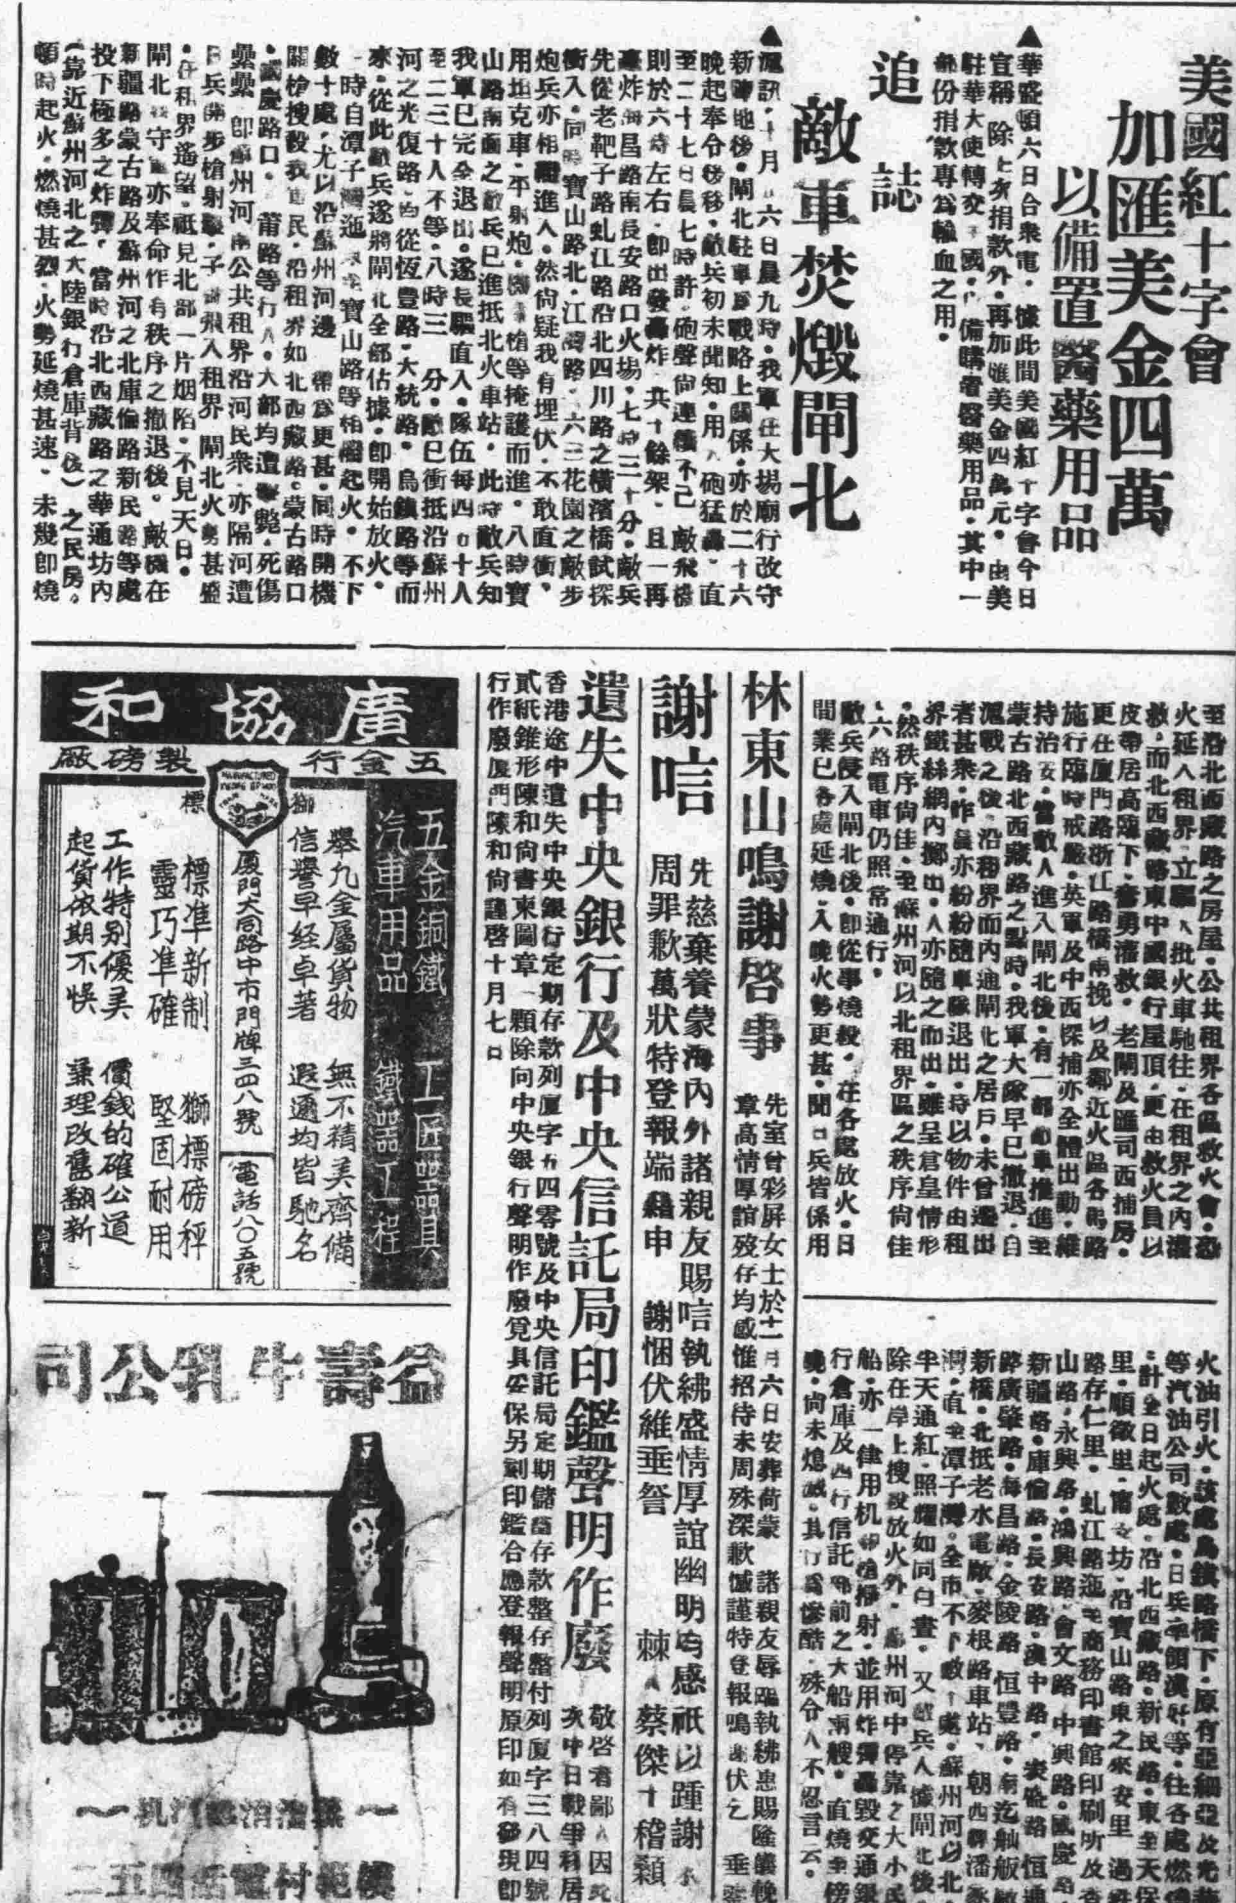 美國紅十字會
加匯美金四萬
以備置醫藥用品
▲華盛頓六日合衆電．據此間美國紅十字會今日
宣稱．除上次捐款外．再加匯美金四萬元．由美
駐華大使轉交 國．備購置醫藥用品．其中一
部份捐款專為輸血之用．
敵車焚燬閘北
追誌
▲滬訊．十月 六日晨九時．我軍在大場廟行改守
新陣地後．閘北駐軍為戰略上關係．亦於二十六
晚起奉令後移．敵兵初未聞知．用 砲猛轟．直
至二十七日晨七時許．砲聲尙連續不已 敵飛機
則於六時左右．即出發轟炸．共十餘架．且一再
轟炸海昌路南長安路口火場．七時三十分．敵兵
先從老靶子路虬江路沿北四川路之橫濱橋試探
衝入．同時寶山路北．江灣路．六三花園之敵步
炮兵亦相繼進入．然尙疑我有埋伏．不敢直衝．
用坦克車．平射炮．機 槍等掩護而進．八時寶
山路南面之敵兵已進抵北火車站．此時敵兵知
我軍已完全退出．遂長驅直入．隊伍每四五十人
至二三十人不等．八時三 分．敵已衝抵沿蘇州
河之光復路．均從恆豐路．大統路．烏鎮路等而
來．從此敵兵遂將閘北全部佔據．即開始放火．
一時自潭子灣迤 寶山路等相繼起火．不下
數十處．尤以沿蘇州河邊 為更甚．同時開機
關槍搜殺我 民．沿租界如北西藏路．蒙古路口
．國慶路口． 莆路等行人．大部均遭擊斃．死傷
纍纍．卽蘇州河南公共租界沿河民衆．亦隔河遭
日兵 步槍射擊．子 飛入租界 閘北火勢甚盛
．在租界遙望．祇見北部一片烟陷．不見天日．
閘北 守軍亦奉命作有秩序之撤退後．敵機在
新疆路蒙古路及蘇州河之北庫倫路新民路等處
投下極多之炸彈．當時沿北西藏路之華通坊內
（靠近蘇州河北之大陸銀行倉庫背後）之民房．
頓時起火．燃燒甚烈．火勢延燒甚速．未幾即燒
至沿北西藏路之房屋．公共租界各區救火會．恐
火延入租界．立驅 批火車馳往．在租界之內灌
救．而北西藏路東中國銀行屋頂．更由救火員以
皮帶居高臨下．奮勇灌救．老閘及匯司西捕房．
更在厦門路浙江路橋兩挽以及鄰近火區各馬路
施行臨時戒嚴．英軍及中西探捕亦全體出動．維
持治安．當敵人進入閘北後．有一部 車推進至
蒙古路北西藏路之點時．我軍大隊早已撤退．自
滬戰之後．沿租界而內通閘北之居戶．未曾遷出
者甚衆．昨晨亦紛紛隨軍隊退出．持以物件由租
界鐵絲網內擲出．人亦隨之而出．雖呈倉皇情形
．然秩序尙佳．至蘇州河以北租界區之秩序尙佳
．六路電車仍照常通行．
敵兵侵入閘北後．卽從事燒殺．在各處放火．日
間業已各處延燒．入晚火勢更甚．聞日兵皆係用
火油引火．該處烏鎮路橋下．原有亞細亞及光
等汽油公司數處．日兵率領漢奸等．往各處燃
．計全日起火處．沿北西藏路．新民路．東至天保
里．順徵里．甯 坊．沿寶山路東之來安里
路存仁里．虬江路迤 商務印書館印刷所及
山路．永興路．鴻興路．會文路．中興路．國慶
新疆路．庫倫路．長安路．漢中路．裴倫路 恒通
路廣肇路．海昌路．金陵路 恒豐路．南迄舢舨
新橋．北抵老水電廠．麥根路車站． 潘家
灣．直至潭子灣．全市不下數十處．蘇州河以北．
半天通紅．照耀如同白晝．又敵兵人據閘北後
除在岸上搜殺放火外．蘇州河中停靠之大小民
船．亦一律用机 槍掃射．並用炸彈轟毀交通銀
行倉庫及四行信託 前之大船兩艘．直燒至傍
晚．尙未熄滅．其行為慘酷．殊令人不忍言云．
林東山鳴謝啓事
先室曾彩屏女士於十一月六日安葬荷蒙 諸親友辱臨執紼惠賜隆儀輓
章高情厚誼歿存均感惟招待未周殊深歉憾謹特登報鳴謝伏乞 垂鑒
謝唁
先慈棄養蒙海內外諸親友賜唁執紼盛情厚誼幽明均感祇以踵謝未
周罪歉萬狀特登報端藉申 謝悃伏維垂詧
棘人蔡傑十稽顙
遺失中央銀行及中央信託局印鑑聲明作廢
敬啓者鄙人因此
次中日戰爭移居
香港途中遺失中央銀行定期存款列厦字五四零號及中央信託局定期儲蓄存款整存整付列厦字三八四號
貳紙錐形陳和尙書柬圖章一顆除向中央銀行聲明作廢覓具妥保另刻印鑑合應登報聲明原印如有發現卽
行作廢厦門陳和尙謹啓十月七日
廣協和
五金行 製磅廠
MANUFACTURED
獅標
五金銅鐵 工匠器具
汽車用品 鐵器工程
舉凡金屬貨物 無不精美齊備
信譽早经卓著 遐邇均皆馳名
厦門大同路中市門牌三四八號
電話八〇五號
標準新制 獅標磅秤
靈巧準確 堅固耐用
工作特别優美 價錢的確公道
起貨依期不悞 兼理改舊翻新
益壽牛乳公司
模範村電話四五二